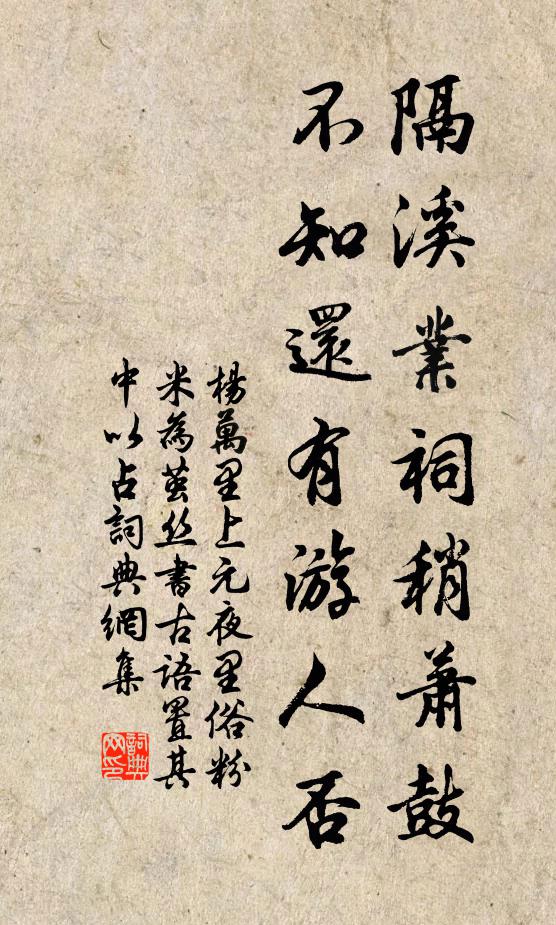 隔溪業祠稍蕭鼓
不知還有游人否
楊萬里上元夜里俗粉
米為茧丝書古語置其
中以占詞典網集
詞典网印